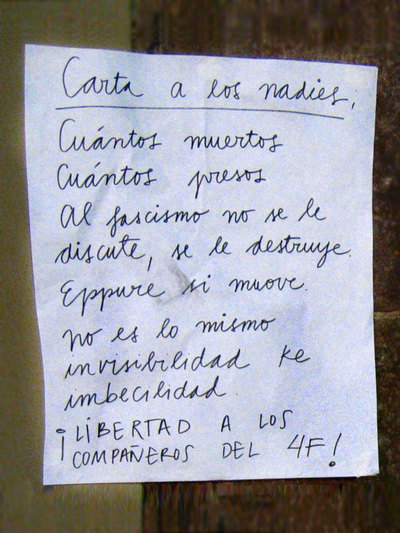 Carta a los nadies;
Cuántos muertos
Cuántos presos
Al fascismo no se le
discute, se le destruye.
Eppure si muove.
No es lo mismo
invisibilidad ke
imbecilidad.
¡LIBERTAD A LOS
COMPAÑEROS DEL 4F!